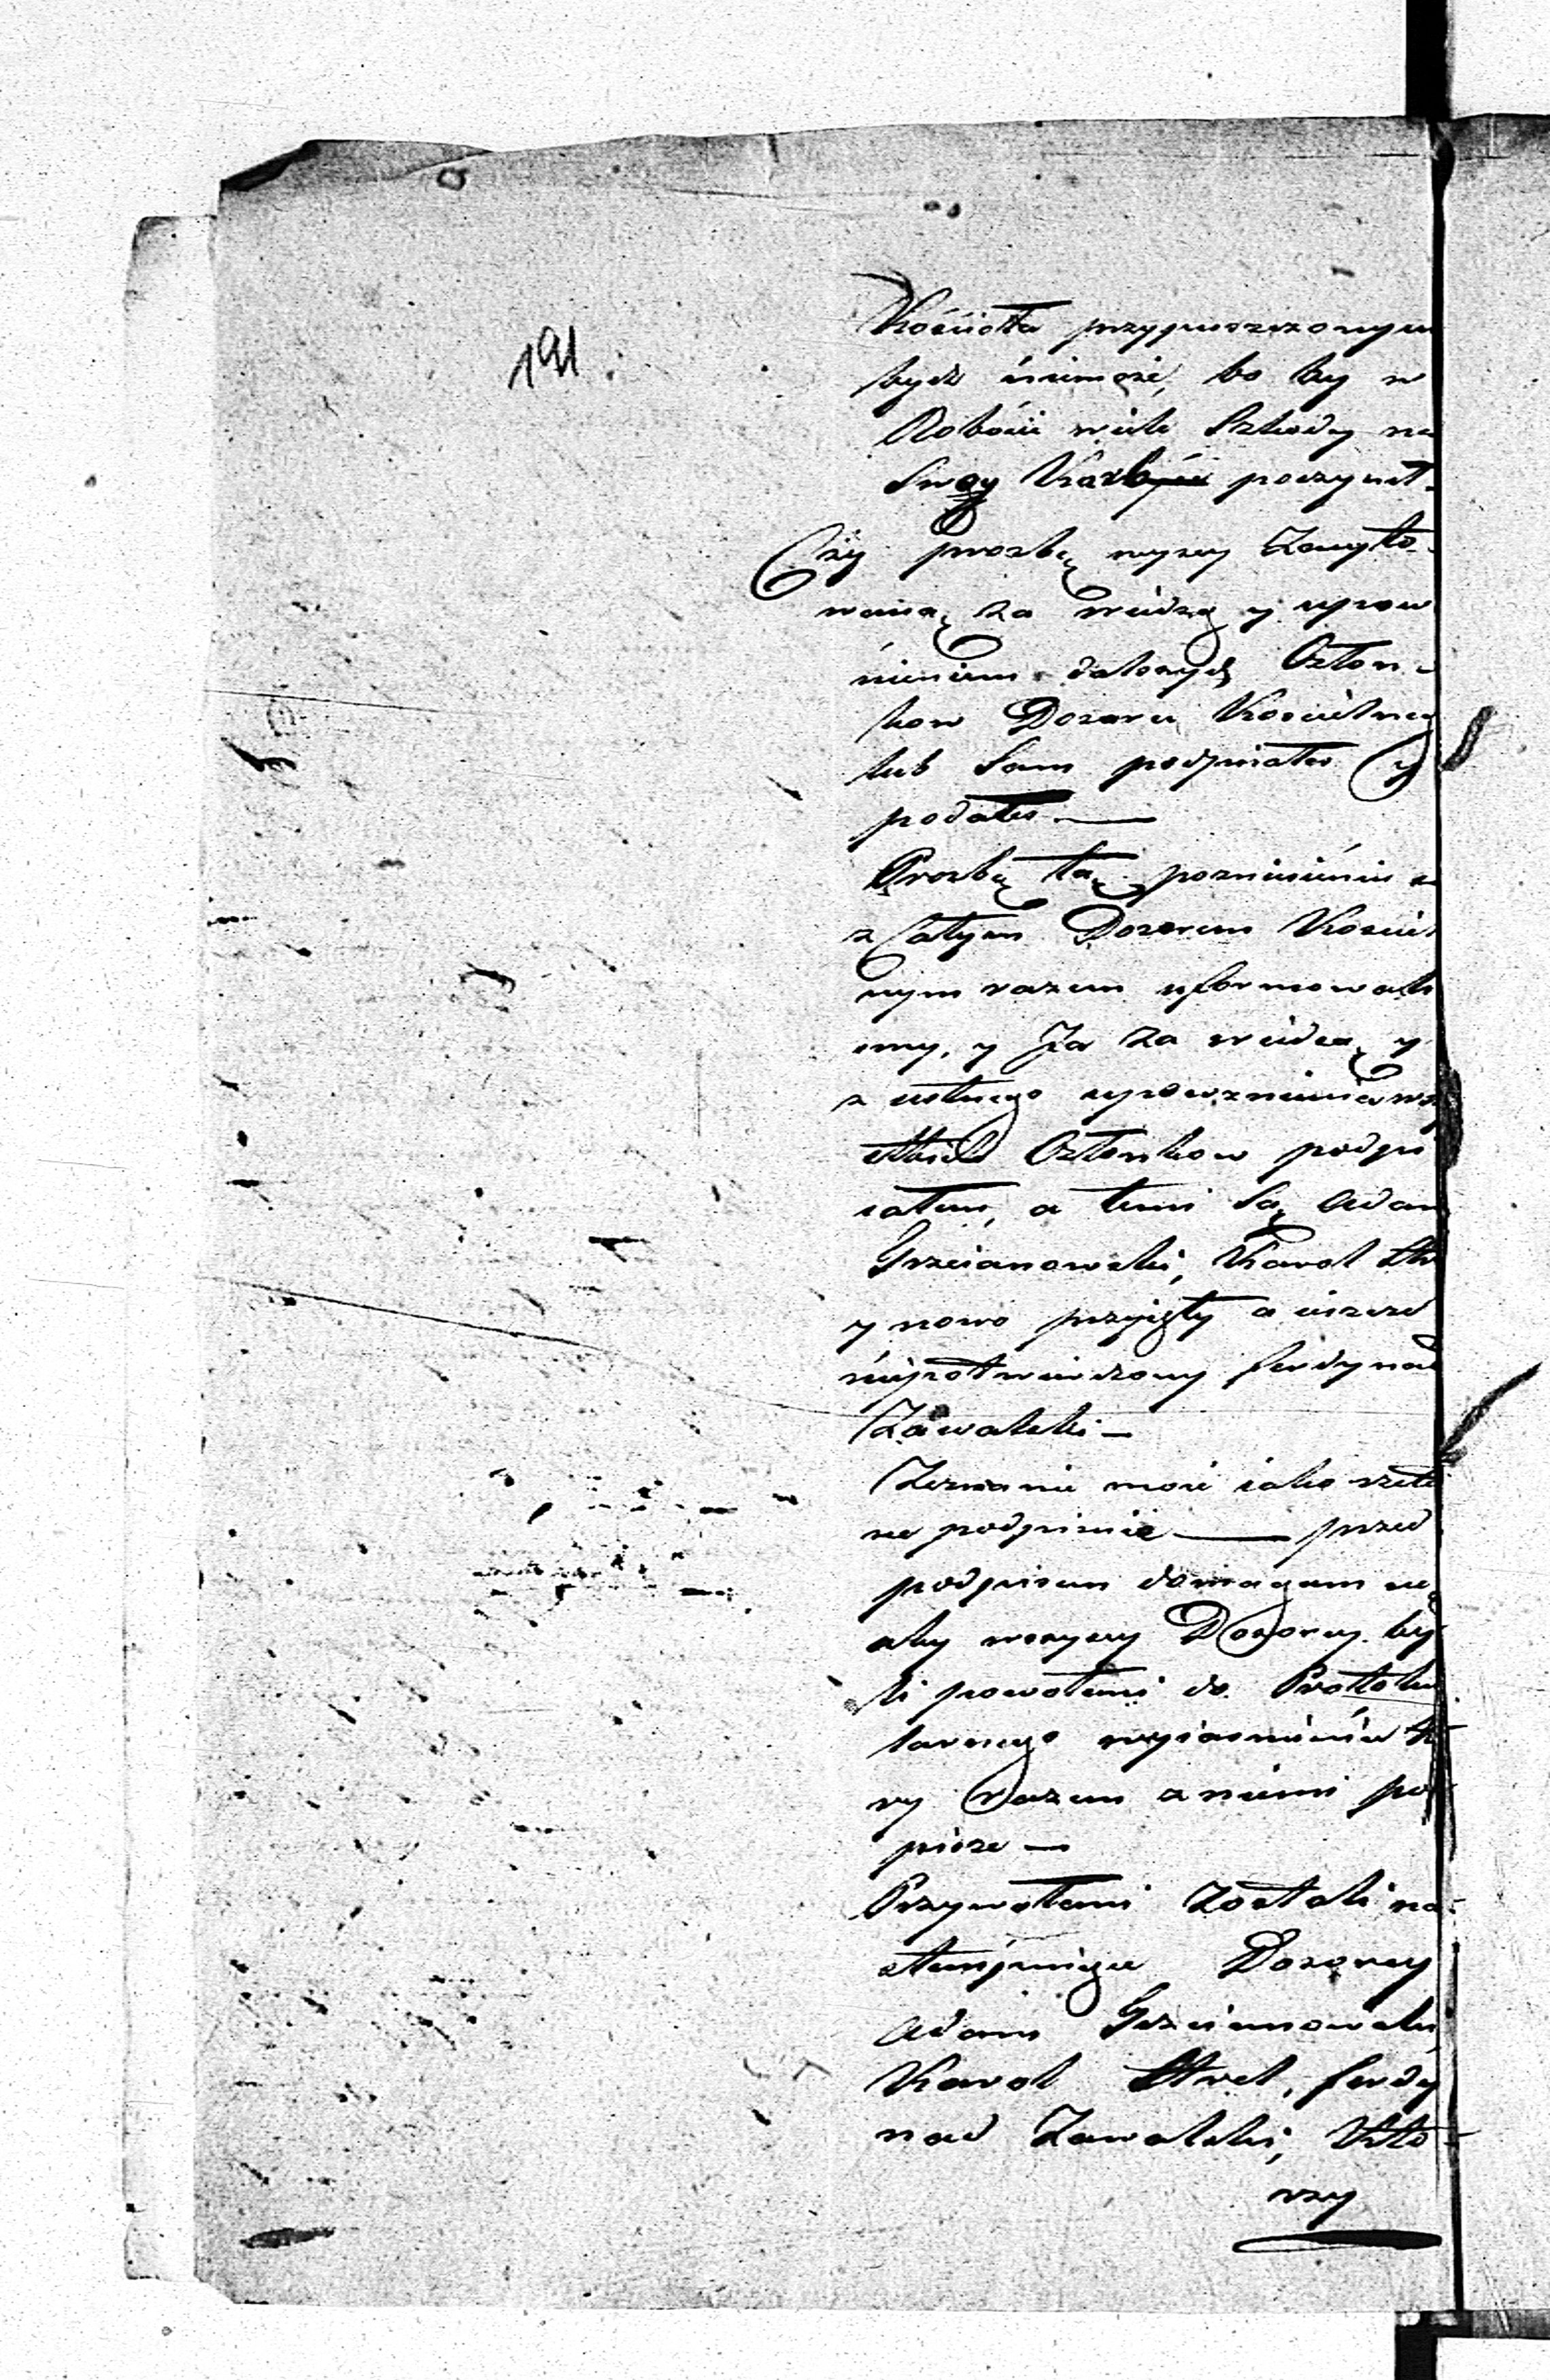 191.
Kościoła przypuszczonym
bydz niemoże, bo by w
Robocie wiele Szkody na
Swoy Karb poczynił.
Czy prozbę wyzey Zacyto-
waną za wiedzą y upow
nieniem dalszych Człon-
kow Dozoru Koscielneg
lub Sam podpisałes y
podałes. —
Prozbę tą pozniesieniu
z Całym Dozorem Koscie
nym razem uformowali
smy, y Ja za wiedzą y
z ustnego upowznienia ws
stkich Członkow podpi
sałem, a temi Są Adam
Grzeianowski, Karol Str
y nowo przyięty a ieszcze
niepotwierdzony ferdynad
Zawalski —
Zeznanie moie iako rzetel
ne podpisuie — przed
podpisem domagam się
aby wszyscy Dozorcy by
li powołani do Protoku
larnego wyiasnienia któ
ry razem z niemi pod
pisze —
Przywołani Zostali na-
stempuiące Dozorcy
Adam Grzeianowski
Karol Strel, ferdy
nad Zawalski, Któ-
rzy